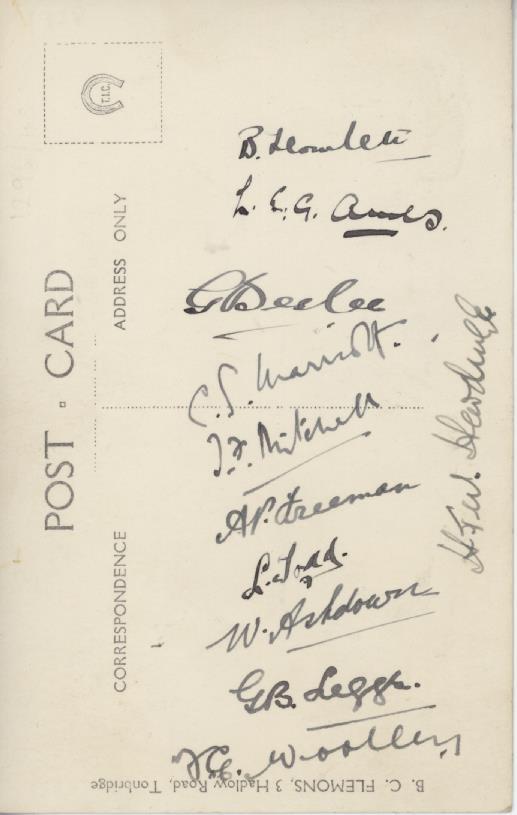 T.I.C.
POST CARD
ADDRESS ONLY
CORRESPONDENCE
B. Howlett
L. E. G. Ames.
C. S. Marriott.
T. F. Mitchell
A. P. Freeman
L. Todd.
W. Ashdown
G B. Legge.
F E. Woolley
H. T. W. Hardinge
B. C. FLEMONS, 3 Hadlow Road, Tonbridge